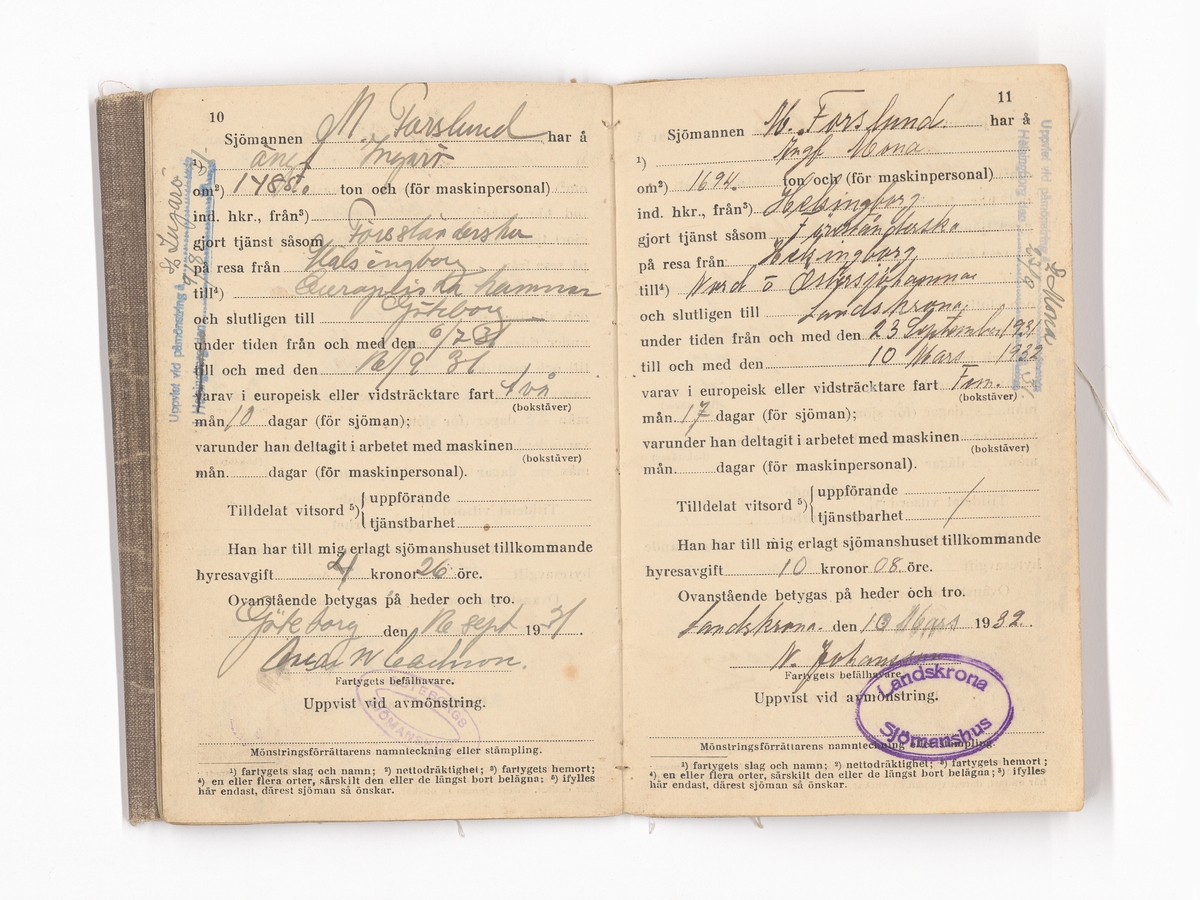 10
Sjömannen M Forslund har å
¹) ång. Ingarö
om²) 1488. ton och (för maskinpersonal)
ind. hkr., från³)
gjort tjänst såsom Förestånderska
på resa från Hälsingborg
till⁴) Europeiska hamnar
och slutligen till Göteborg
under tiden från och med den 6/7 31
till och med den 16/9 31
varav i europeisk eller vidsträcktare fart två
(bokstäver)
mån 10 dagar (för sjöman);
varunder han deltagit i arbetet med maskinen
(bokstäver)
mån. dagar (för maskinpersonal).
Tilldelat vitsord ⁵) uppförande
tjänstbarhet
Han har till mig erlagt sjömanshuset tillkommande
hyresavgift 4 kronor 26 öre.
Ovanstående betygas på heder och tro.
Göteborg den 16 sept 1931.
Fartygets befälhavare.
Uppvist vid avmönstring.
Mönstringsförrättarens namnteckning eller stämpling.
¹) fartygets slag och namn; ²) nettodräktighet; ³) fartygets hemort;
⁴) en eller flera orter, särskilt den eller de längst bort belägna; ⁵) ifylles
här endast, därest sjöman så önskar.
Uppvist vid påmönstring å
S/s Ingarö
11
Sjömannen M. Forslund. har å
¹) Ångf Mona
om²) 1694. ton och (för maskinpersonal)
ind. hkr., från³) Helsingborg
gjort tjänst såsom Förestånderska
på resa från Helsingborg
till⁴) Nord o Östersjöhamnar
och slutligen till Landskrona,
under tiden från och med den 23 September 1931
till och med den 10 Mars 1932
varav i europeisk eller vidsträcktare fart Fem.
(bokstäver)
mån. 17 dagar (för sjöman);
varunder han deltagit i arbetet med maskinen
(bokstäver)
mån. dagar (för maskinpersonal).
Tilldelat vitsord ⁵) uppförande
tjänstbarhet
Han har till mig erlagt sjömanshuset tillkommande
hyresavgift 10 kronor 08 öre.
Ovanstående betygas på heder och tro.
Landskrona. den 10 Mars 1932.
N. Johansson
Fartygets befälhavare.
Uppvist vid avmönstring.
Landskrona
Sjömanshus
Mönstringsförrättarens namnteckning eller stämpling.
¹) fartygets slag och namn; ²) nettodräktighet; ³) fartygets hemort;
⁴) en eller flera orter, särskilt den eller de längst bort belägna; ⁵) ifylles
här endast, därest sjöman så önskar.
Uppvist vid påmönstring
S/s Mona